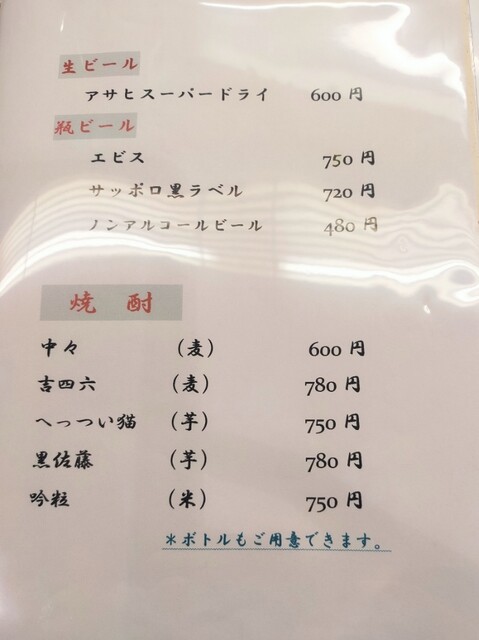 生ビール
アサヒスーパードライ 600 円
瓶ビール
エビス 750 円
サッポロ黒ラベル 720 円
ノンアルコールビール 480 円
焼 酎
中々 (麦) 600 円
吉四六 (麦) 780 円
へっつい猫 (芋) 750 円
黒佐藤 (芋) 780 円
吟粒 (米) 750 円
＊ボトルもご用意できます。